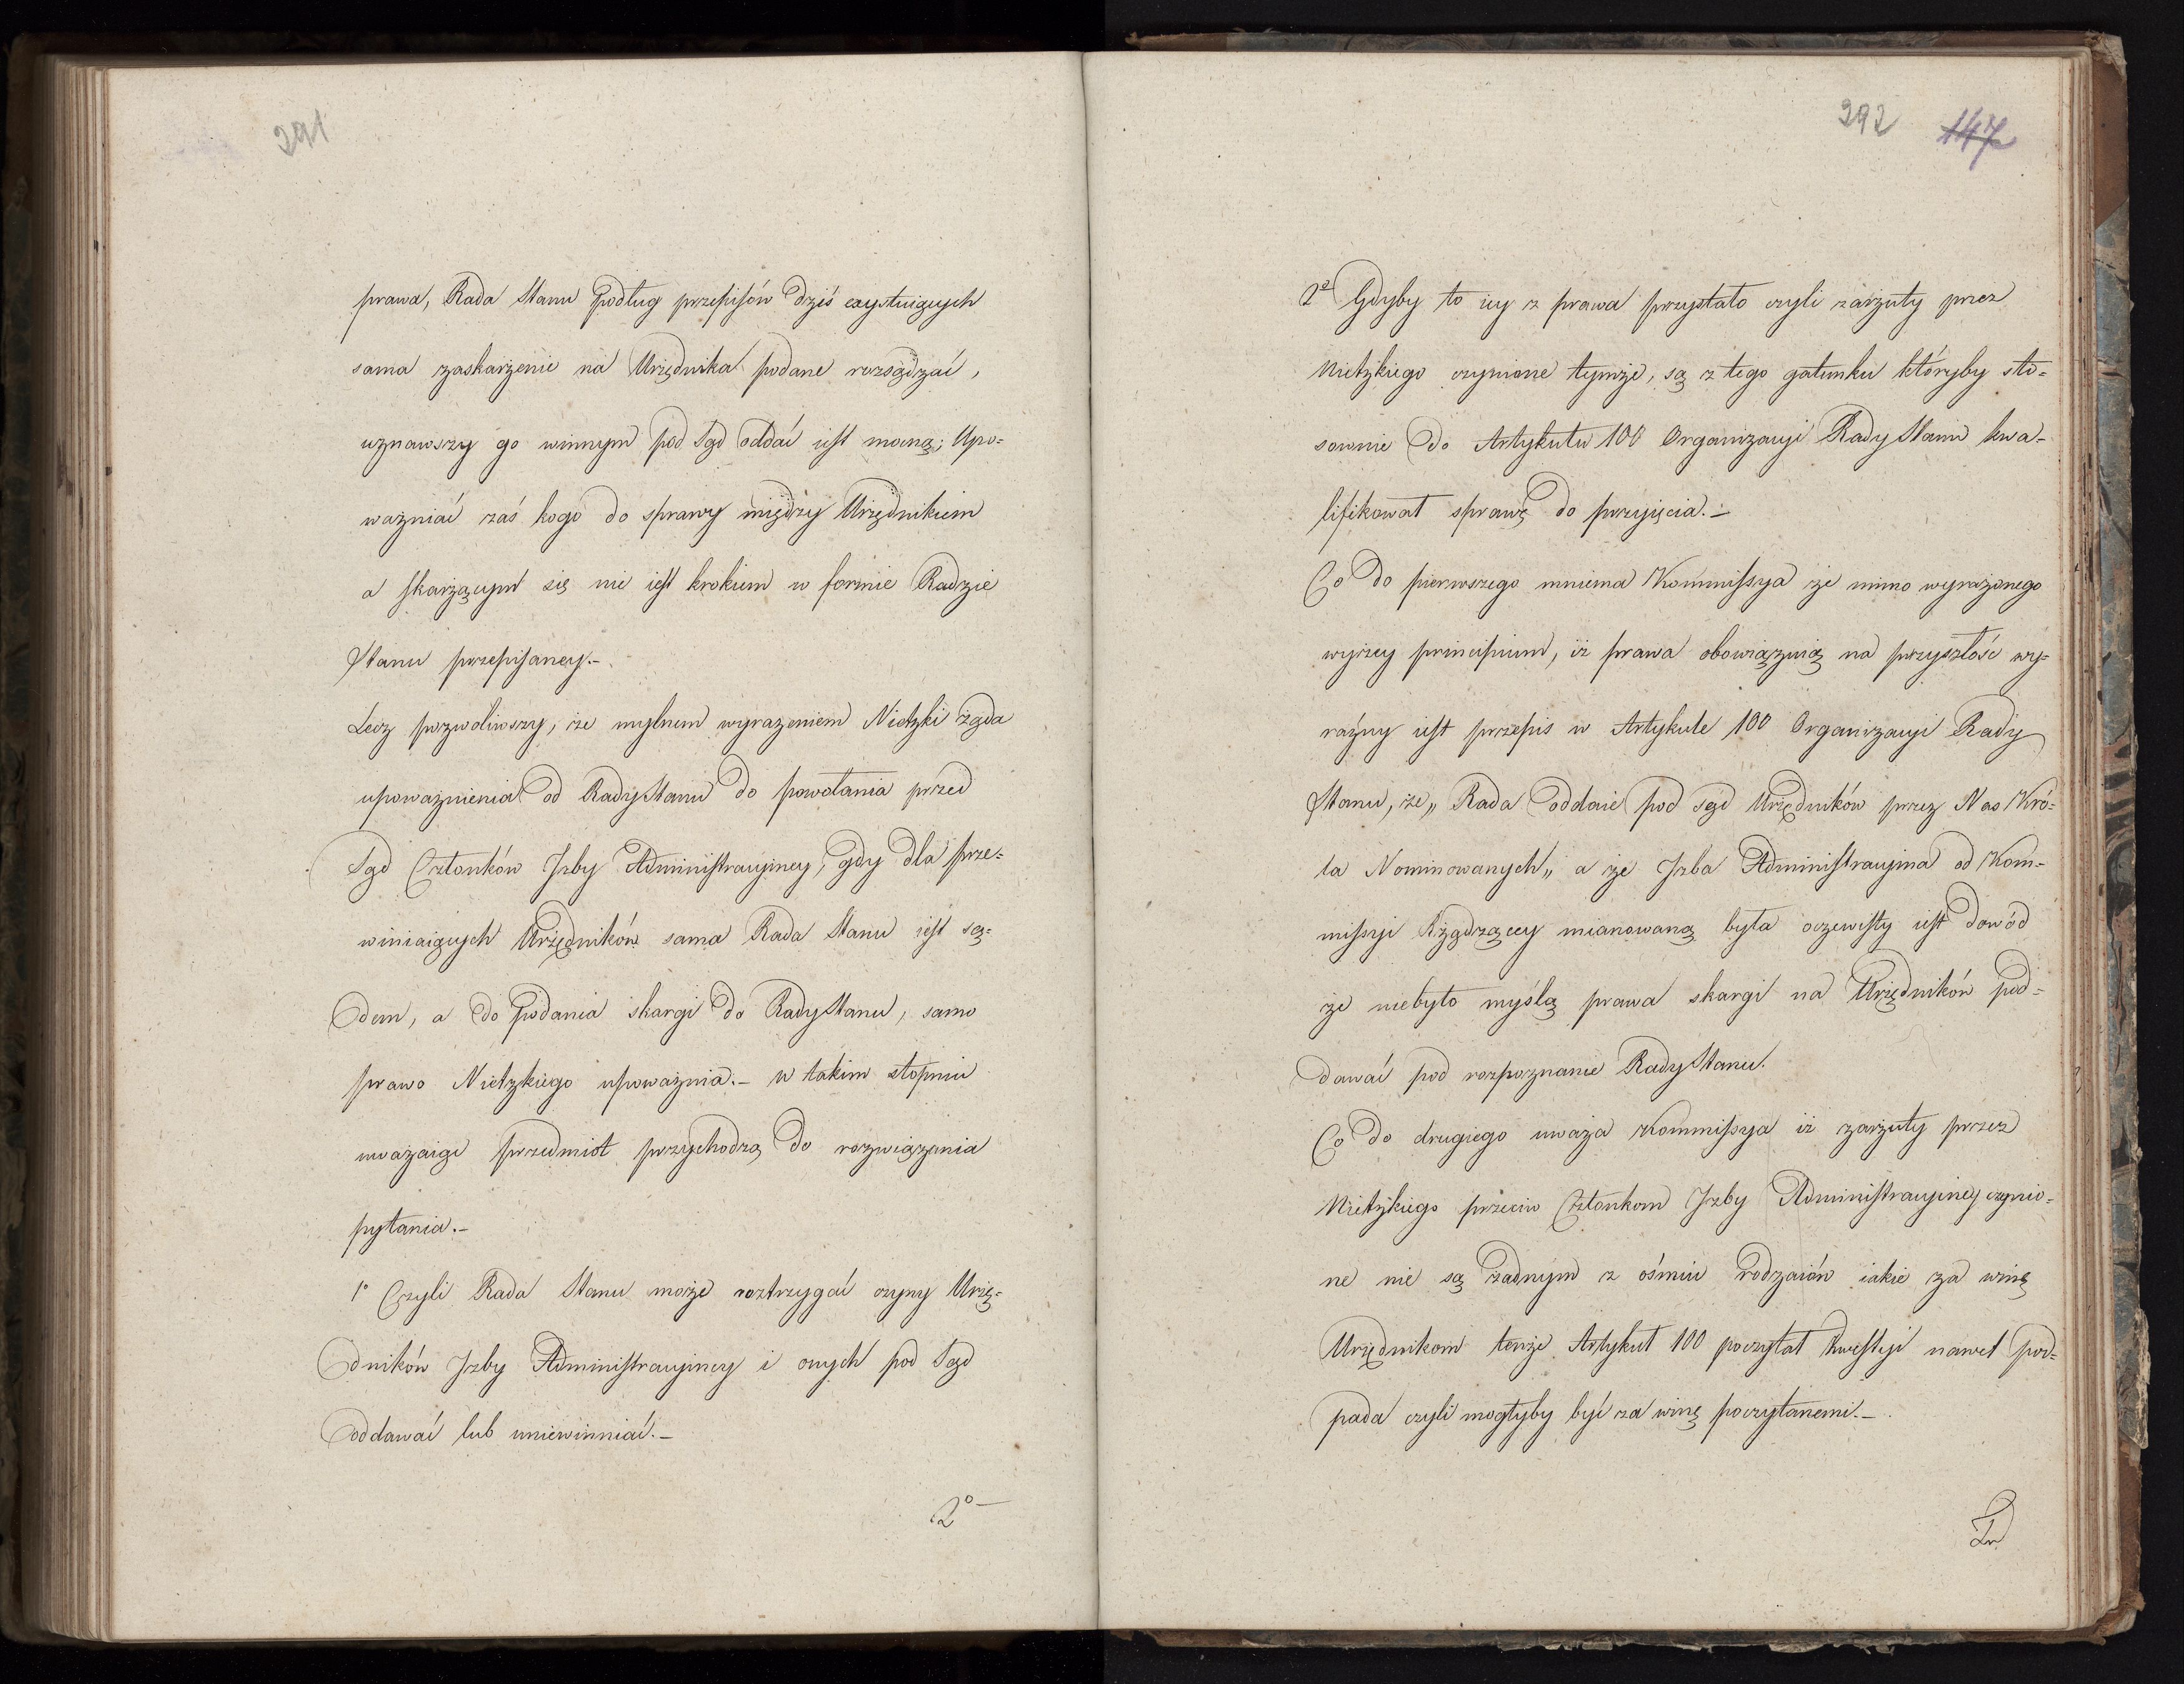 291
prawa, Rada Stanu podług przepisów dziś exystuiących
sama zaskarżenie na Urzędnika podane rozsądzać,
uznawszy go winnym pod Sąd oddać iest mocną; Upo-
ważniać zaś kogo do sprawy między Urzędnikiem
a skarżącym się nie iest krokiem w formie Radzie
Stanu przepisaney.-
Lecz pozwoliwszy, że mylnem wyrażeniem Nietzki żąda
upoważnienia od Rady Stanu do powołania przed
Sąd Członków Izby Administracyiney, gdy dla prze-
winiaiących Urzędników sama Rada Stanu iest są-
dem, a do podania skargi do Rady Stanu, samo
prawo Nietzkiego upoważnia.- w takim stopniu
uważaiąc przedmiot przychodzą do rozwiązania
pytania.-
1° Czyli Rada Stanu może roztrzygać czyny Urzę-
dników Izby Administracyiney i onych pod Sąd
oddawać lub uniewinniać.-
2°-
292 147
2° Gdyby to iey z prawa przystało czyli zarzuty przez
Nietzkiego czynione tymże, są z tego gatunku któryby sto-
sownie do Artykułu 100 Organizacyi Rady Stanu kwa-
lifikował sprawę do przyięcia.-
Co do pierwszego mniema Kommissya że mimo wyrażonego
wyżey principium, iż prawa obowiązuią na przyszłość wy-
raźny iest przepis w Artykule 100 Organizacyi Rady
Stanu, że „Rada oddaie pod sąd Urzędników przez Nas Kró-
la Nominowanych„ a że Izba Administracyina od Kom-
missyi Rządzącey mianowaną była oczewisty iest dowód
że niebyło myślą prawa skargi na Urzędników pod-
dawać pod rozpoznanie Rady Stanu.
Co do drugiego uważa Kommissya iż zarzuty przez
Nietzkiego przeciw Członkom Izby Administracyiney czynio-
ne nie są żadnym z ośmiu rodzaiów iakie za winę
Urzędnikom tenże Artykuł 100 poczytał kwestyi nawet pod-
pada czyli mogłyby być za winę poczytanemi.-